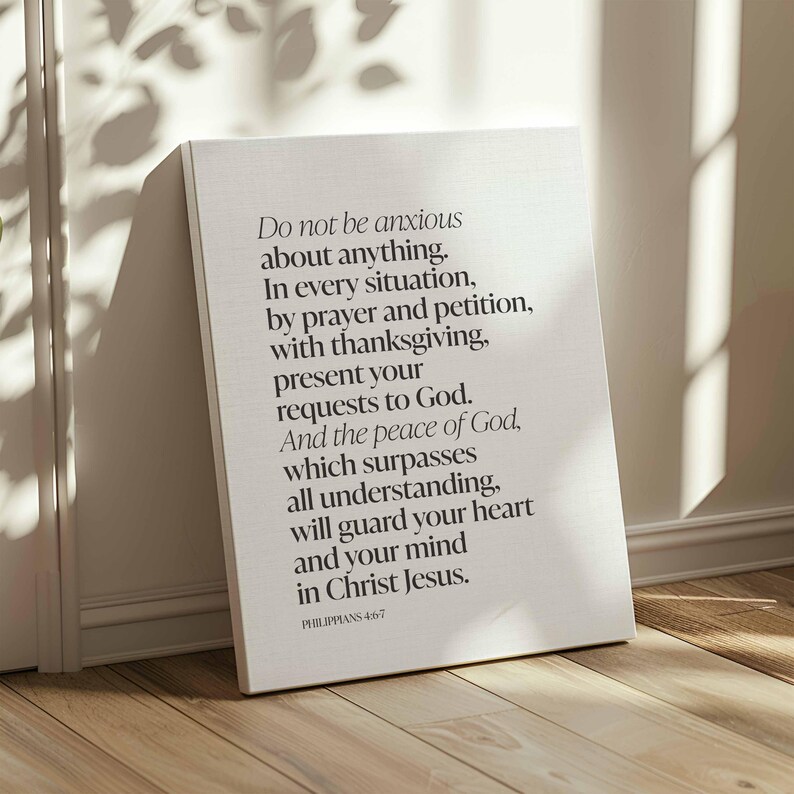 Do not be anxious
about anything.
In every situation,
by prayer and petition,
with thanksgiving,
present your
requests to God.
And the peace of God,
which surpasses
all understanding,
will guard your heart
and your mind
in Christ Jesus.
PHILIPPIANS 4:6-7